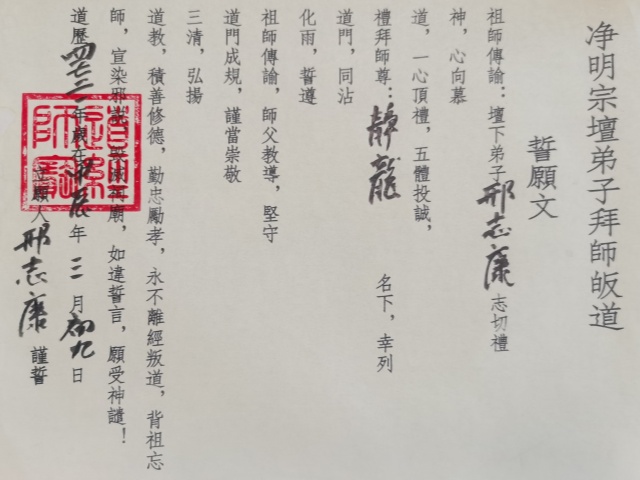 净明宗壇弟子拜師皈道
誓願文
祖師傳諭：壇下弟子邢志康志切禮
神，心向慕
道，一心頂禮，五體投誠，
禮拜師尊：靜龍名下，幸列
道門，同沾
化雨，誓遵
祖師傳諭，師父教導，堅守
道門成規，謹當崇敬
三清，弘揚
道教，積善修德，勤忠勵孝，永不離經叛道，背祖忘
師，宣染邪說，毀滅祠廟，如違誓言，願受神譴！
道歷四七二一年歲在年三月初九日
立願人邢志康謹誓